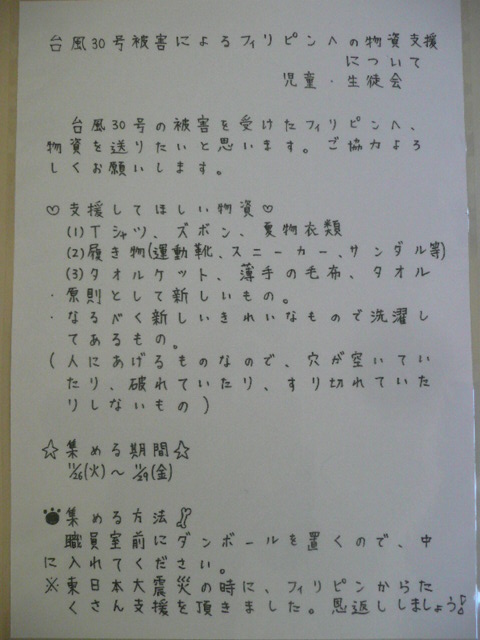 台風30号被害によるフィリピンへの物資支援
について
児童・生徒会
台風30号の被害を受けたフィリピンへ、
物資を送りたいと思います。ご協力よろ
しくお願いします。
♡支援してほしい物資♡
(1)Tシャツ、ズボン、夏物衣類
(2)履き物(運動靴、スニーカー、サンダル等)
(3)タオルケット、薄手の毛布、タオル
・原則として新しいもの。
・なるべく新しいきれいなもので洗濯し
てあるもの。
(人にあげるものなので、穴が空いてい
たり、破れていたり、すり切れていた
りしないもの)
☆集める期間☆
11/26(火)～11/29(金)
集める方法
職員室前にダンボールを置くので、中
に入れてください。
※東日本大震災の時に、フィリピンからた
くさん支援を頂きました。恩返ししましょう!